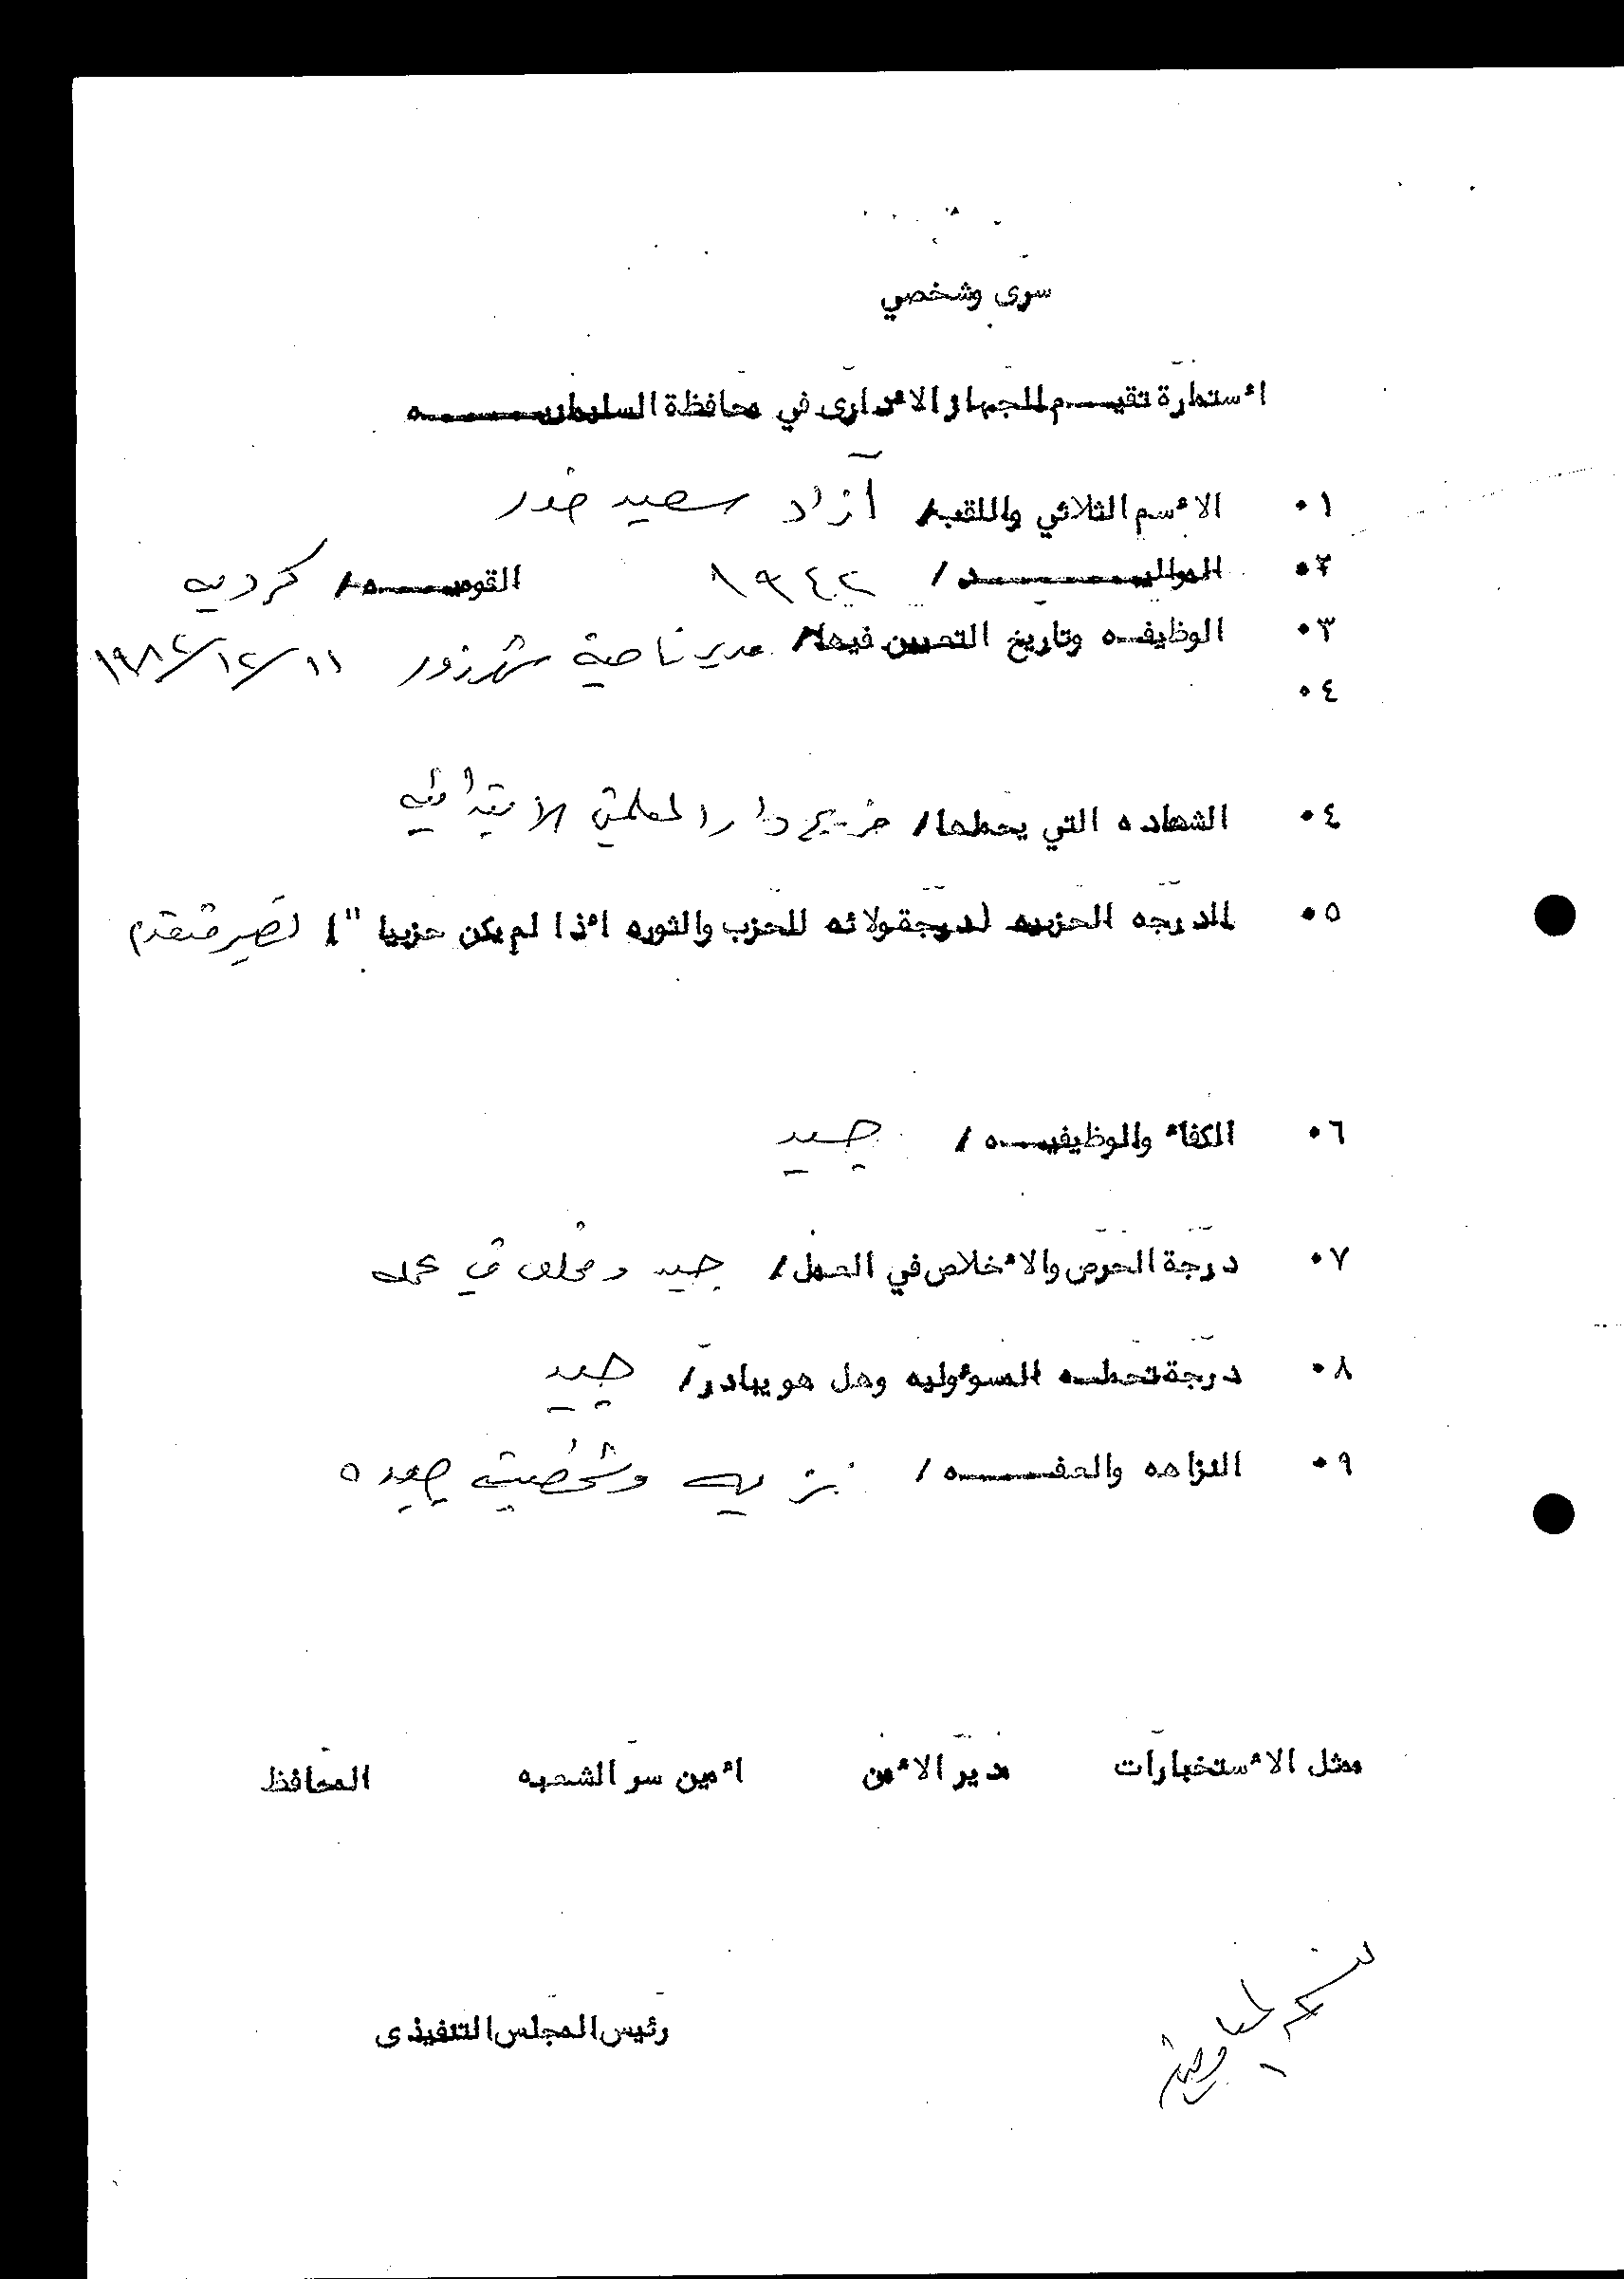 سرى وشخصي
استمارة تقيـــم للجهاز الاداري في محافظة السليمانيـــــه
١. الاسم الثلاثي واللقب/ آزاد سعيد خدر
٢. المواليــــــد/ ١٩٤٢ القوميـــه/ كرديه
٣. الوظيفه وتاريخ التعيين فيها/ مدير ناحية شهرزور ١١/١٢/١٩٨٢
٤.
٤. الشهاده التي يحملها/ خريج دار المعلمين الابتدائيه
٥. الدرجه الحزبيه (درجة ولائه للحزب والثوره اذا لم يكن حزبيا") نصير متقدم
٦. الكفاء والوظيفيـــه/ جيد
٧. درجة الحرص والاخلاص في العمل/ جيد ومخلص في عمله
٨. درجة تحملـه المسؤوليه وهل هو يبادر/ جيد
٩. النزاهه والعفـــــه/ نزيه وشخصيته جيده
ممثل الاستخبارات مدير الامن امين سر الشعبه المحافظ
رئيس المجلس التنفيذى